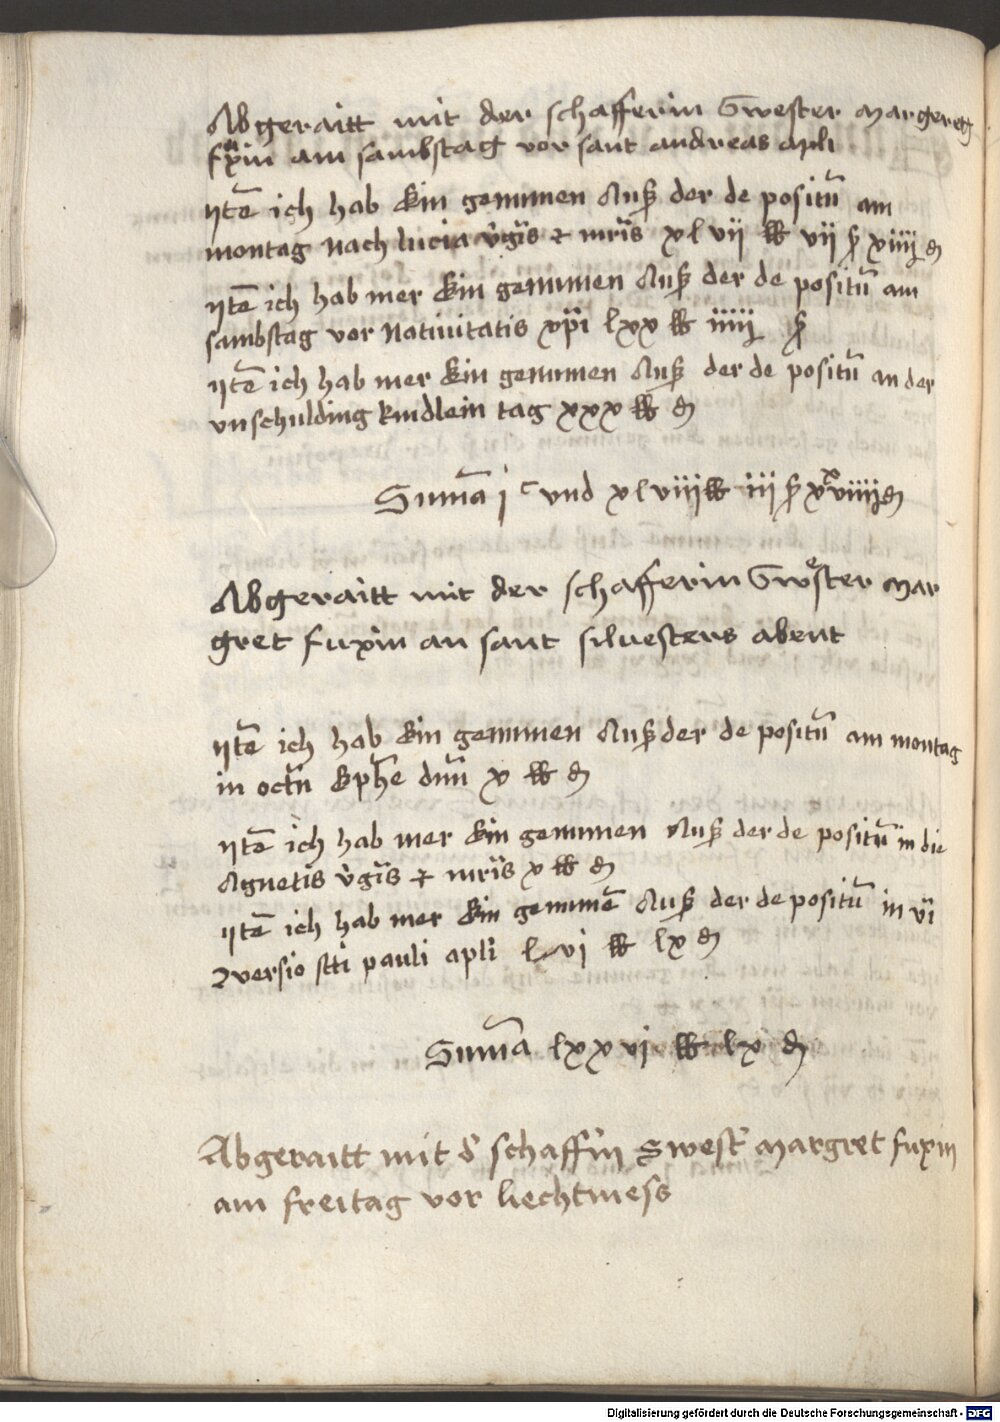 Abgeraitt mit der schafferin Swester margeretg
fuxin am sambstag vor sant andreas apli
Jtē ich hab Ein genumen Auß der de positū am
montag nach lucia v̄gīs et mr̄is xlvii ℔ vii ß xiiij ₰
Jtē ich hab mer Ein genumen Auß der de positū am
sambstag vor Natiuitatis xp̄i lxx ℔ iiij ß
Jtē ich hab mer Ein genumen Auß der de positū an der
vnschulding kindlein tag xxx ℔ ₰
Sum̄a j c vnd xlviij ℔ iii ß xxviiij ₰
Abgeraitt mit der schafferin Swester mar
gret fuxin an sant siluesters abent
Jtē ich hab Ein genumen Auß der de positū am montag
in octū Eph̄e dn̄ī x ℔ ₰
Jtē ich hab mer Ein genumen Auß der de positū in die
Agnetis v̄gīs et mr̄is x ℔ ₰
Jtē ich hab mer Ein genumē Auß der de positū in
ꝯuersio scti pauli apli lvi ℔ lx ₰
Sum̄a lxxvi ℔ lx ₰
Abgeraitt mit d' schaff'in Swest' margret fuxin
am freitag vor liechtmess
Digitalisierung gefördert durch die Deutsche Forschungsgemeinschaft - DFG